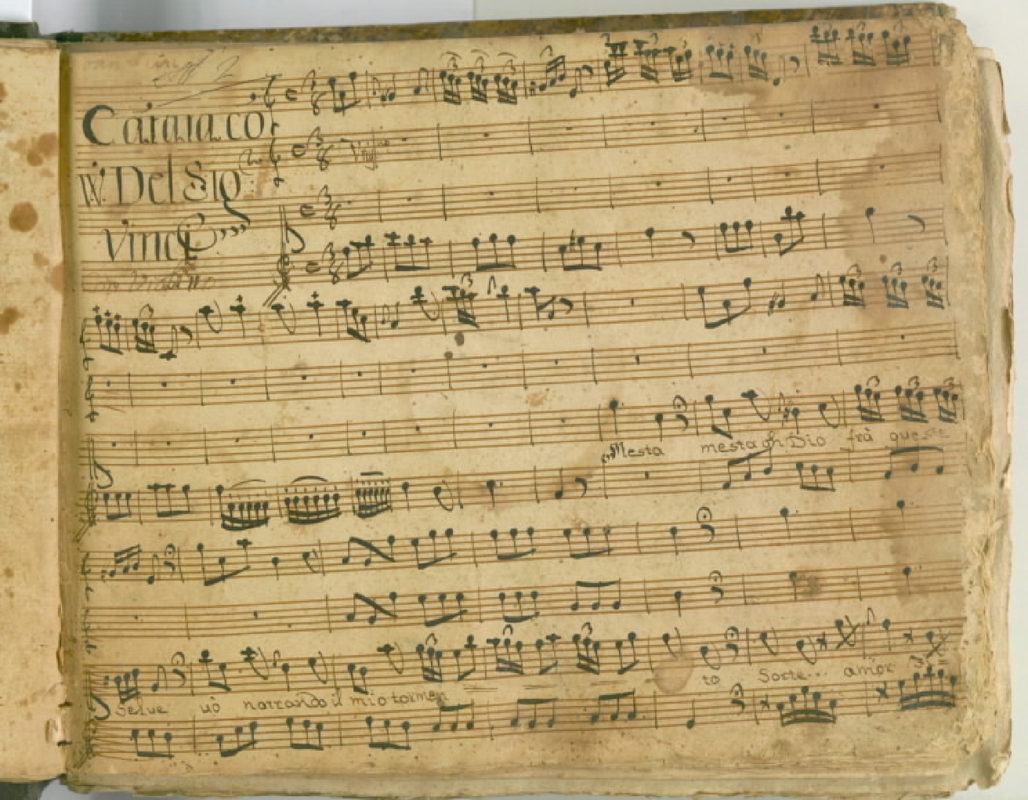 Cantata co
VV. Del Sig
Vinci
Mesta mesta oh Dio frà queste
Selve vò narrando il mio tormen
to Sorte... amor